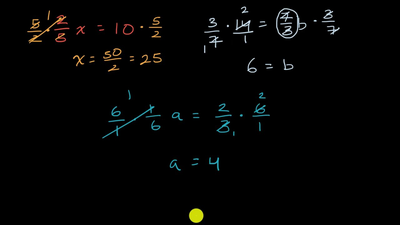 5/2 · 2/5 x = 10 · 5/2
1
x = 50/2 = 25
3/7 · 14/1 = 7/3 b · 3/7
1 2
6 = b
6/1 · 1/6 a = 2/3 · 6/1
1 1 2
a = 4